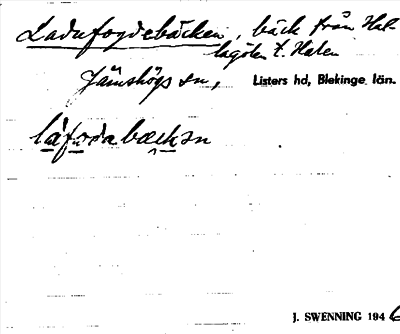 Ladufogdebäcken, bäck från Hal-
lagölen t. Halen
Jämshögs sn, Listers hd, Blekinge län.
låfodabækən
J. SWENNING 1946